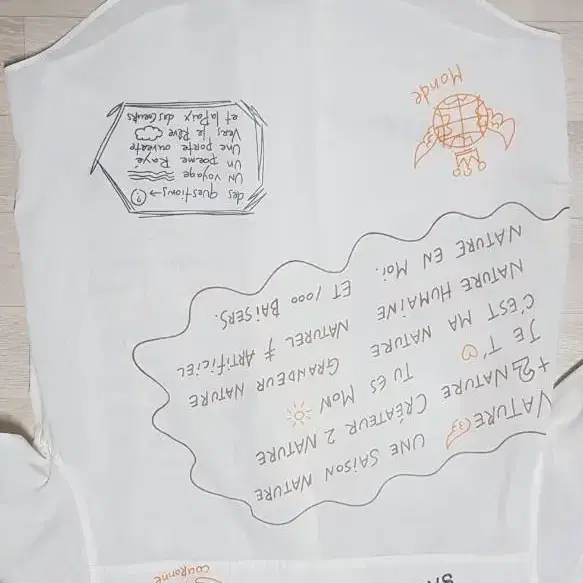 couronne
NATURE UNE SAISON NATURE
+ 2 NATURE CRÉATEUR 2 NATURE
JE T'♡ TU ES MON
C'EST MA NATURE GRANDEUR NATURE
NATURE HUMAINE NATUREL ≠ ARTIFICIEL
NATURE EN MOI. ET 1000 BAISERS.
Monde
des questions → ?
Un voyage
Un poeme Rayé
Une porte ouverte
Vers le Rêve
et la Paix des Coeurs